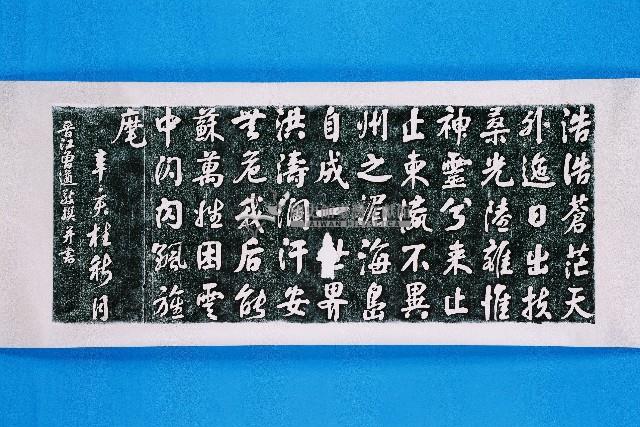 浩浩蒼茫天
外日出扶
桑光陸離惟
神靈兮来止
止東瀛不異
州之湄海島
自成一世界
洪濤汗安
無危我后能
蘇萬姓困雲
中閃閃飄旌
麾
辛亥桂秋月
晋江曾遒敬撰并書